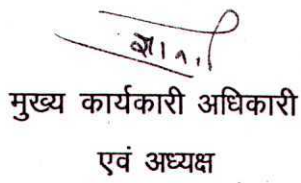 मुख्य कार्यकारी अधिकारी
एवं अध्यक्ष